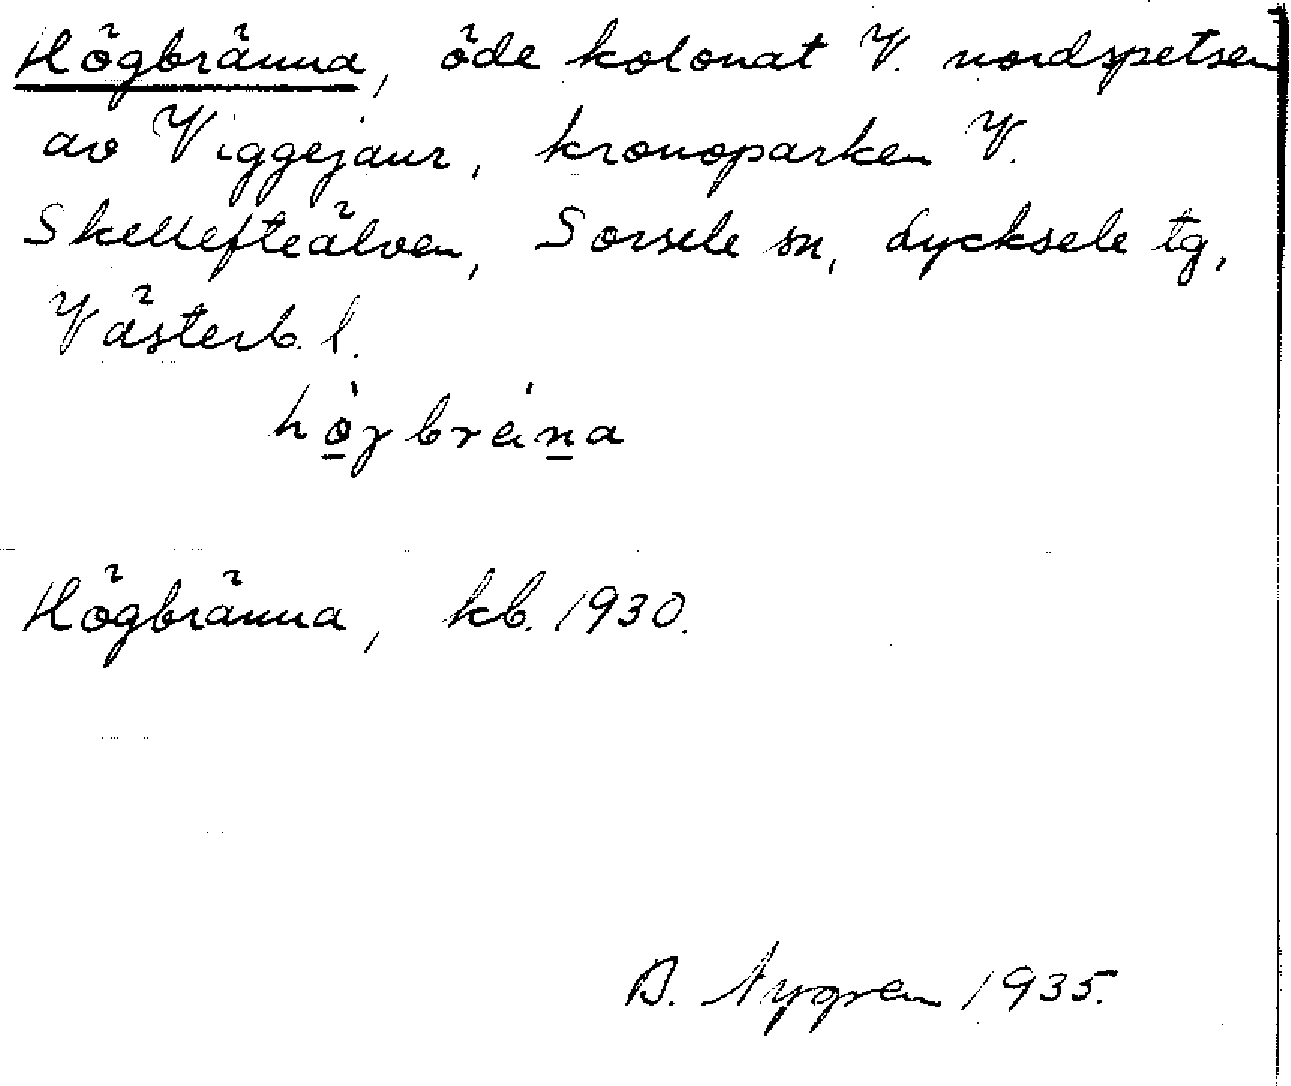 Högbränna, öde kolonat V. nordspetsen
av Viggejaur, kronoparken V.
Skellefteälven, Sorsele sn, Lycksele tg,
Västerb. l.
Högbränna, kb. 1930.
B. Nygren 1935.